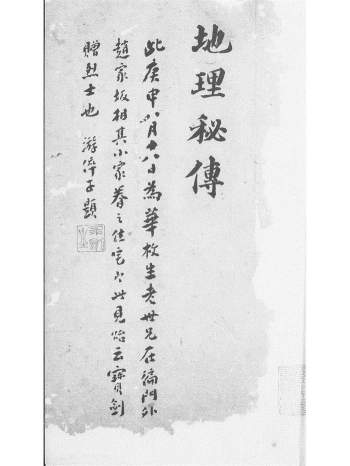 地理秘傳
此庚申八月十八日為華枚生老世兄在偏門外
趙家坂相其小家眷之佳宅以此見貽云寶劍
贈烈士也 游倅子題